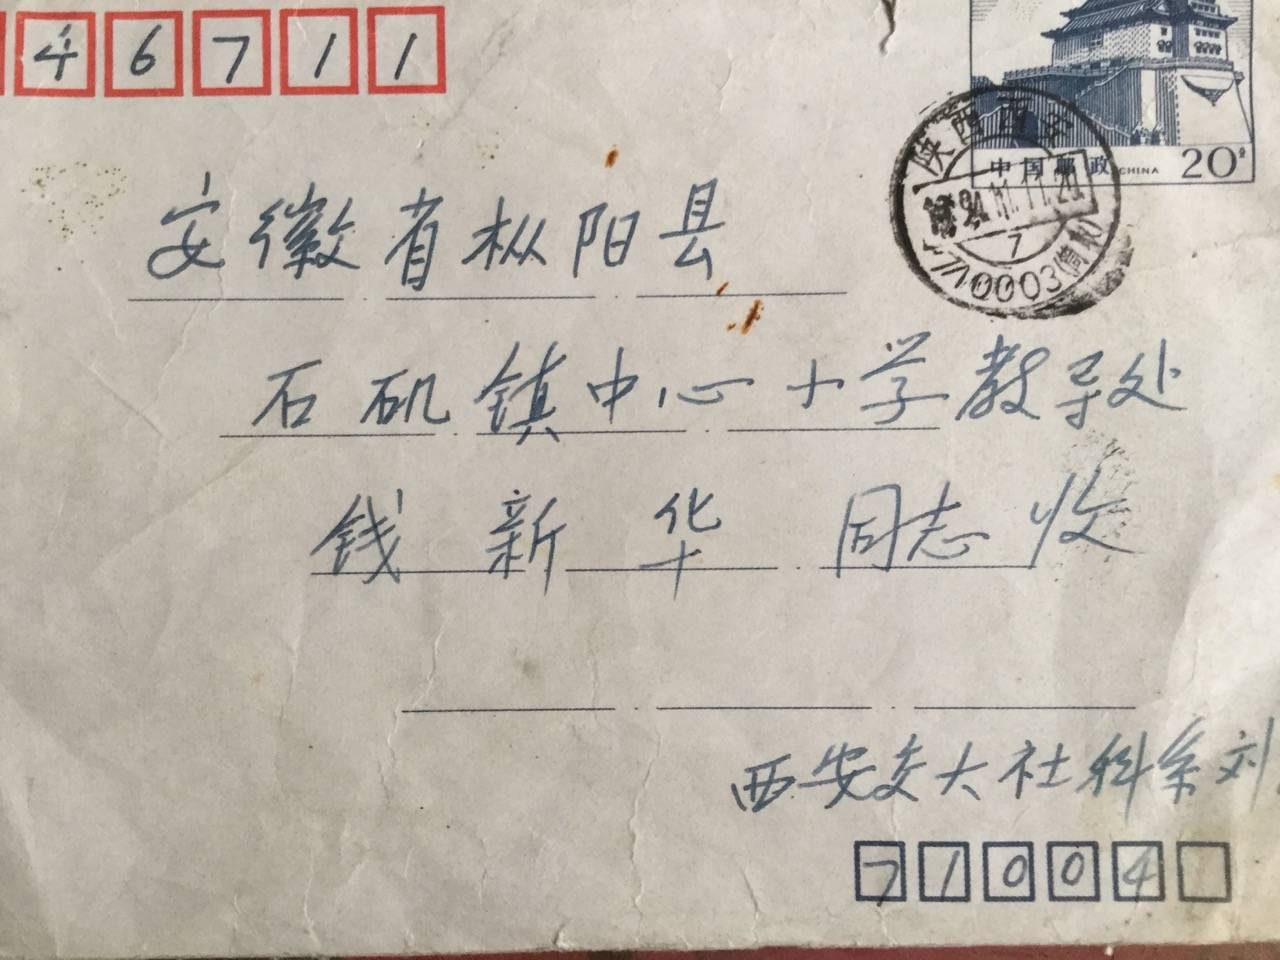 46711
中国邮政 CHINA 20分
陕西西安
94.11.11.20
7
710003
安徽省枞阳县
石矶镇中心小学教导处
钱新华 同志收
西安交大社科系刘
71004